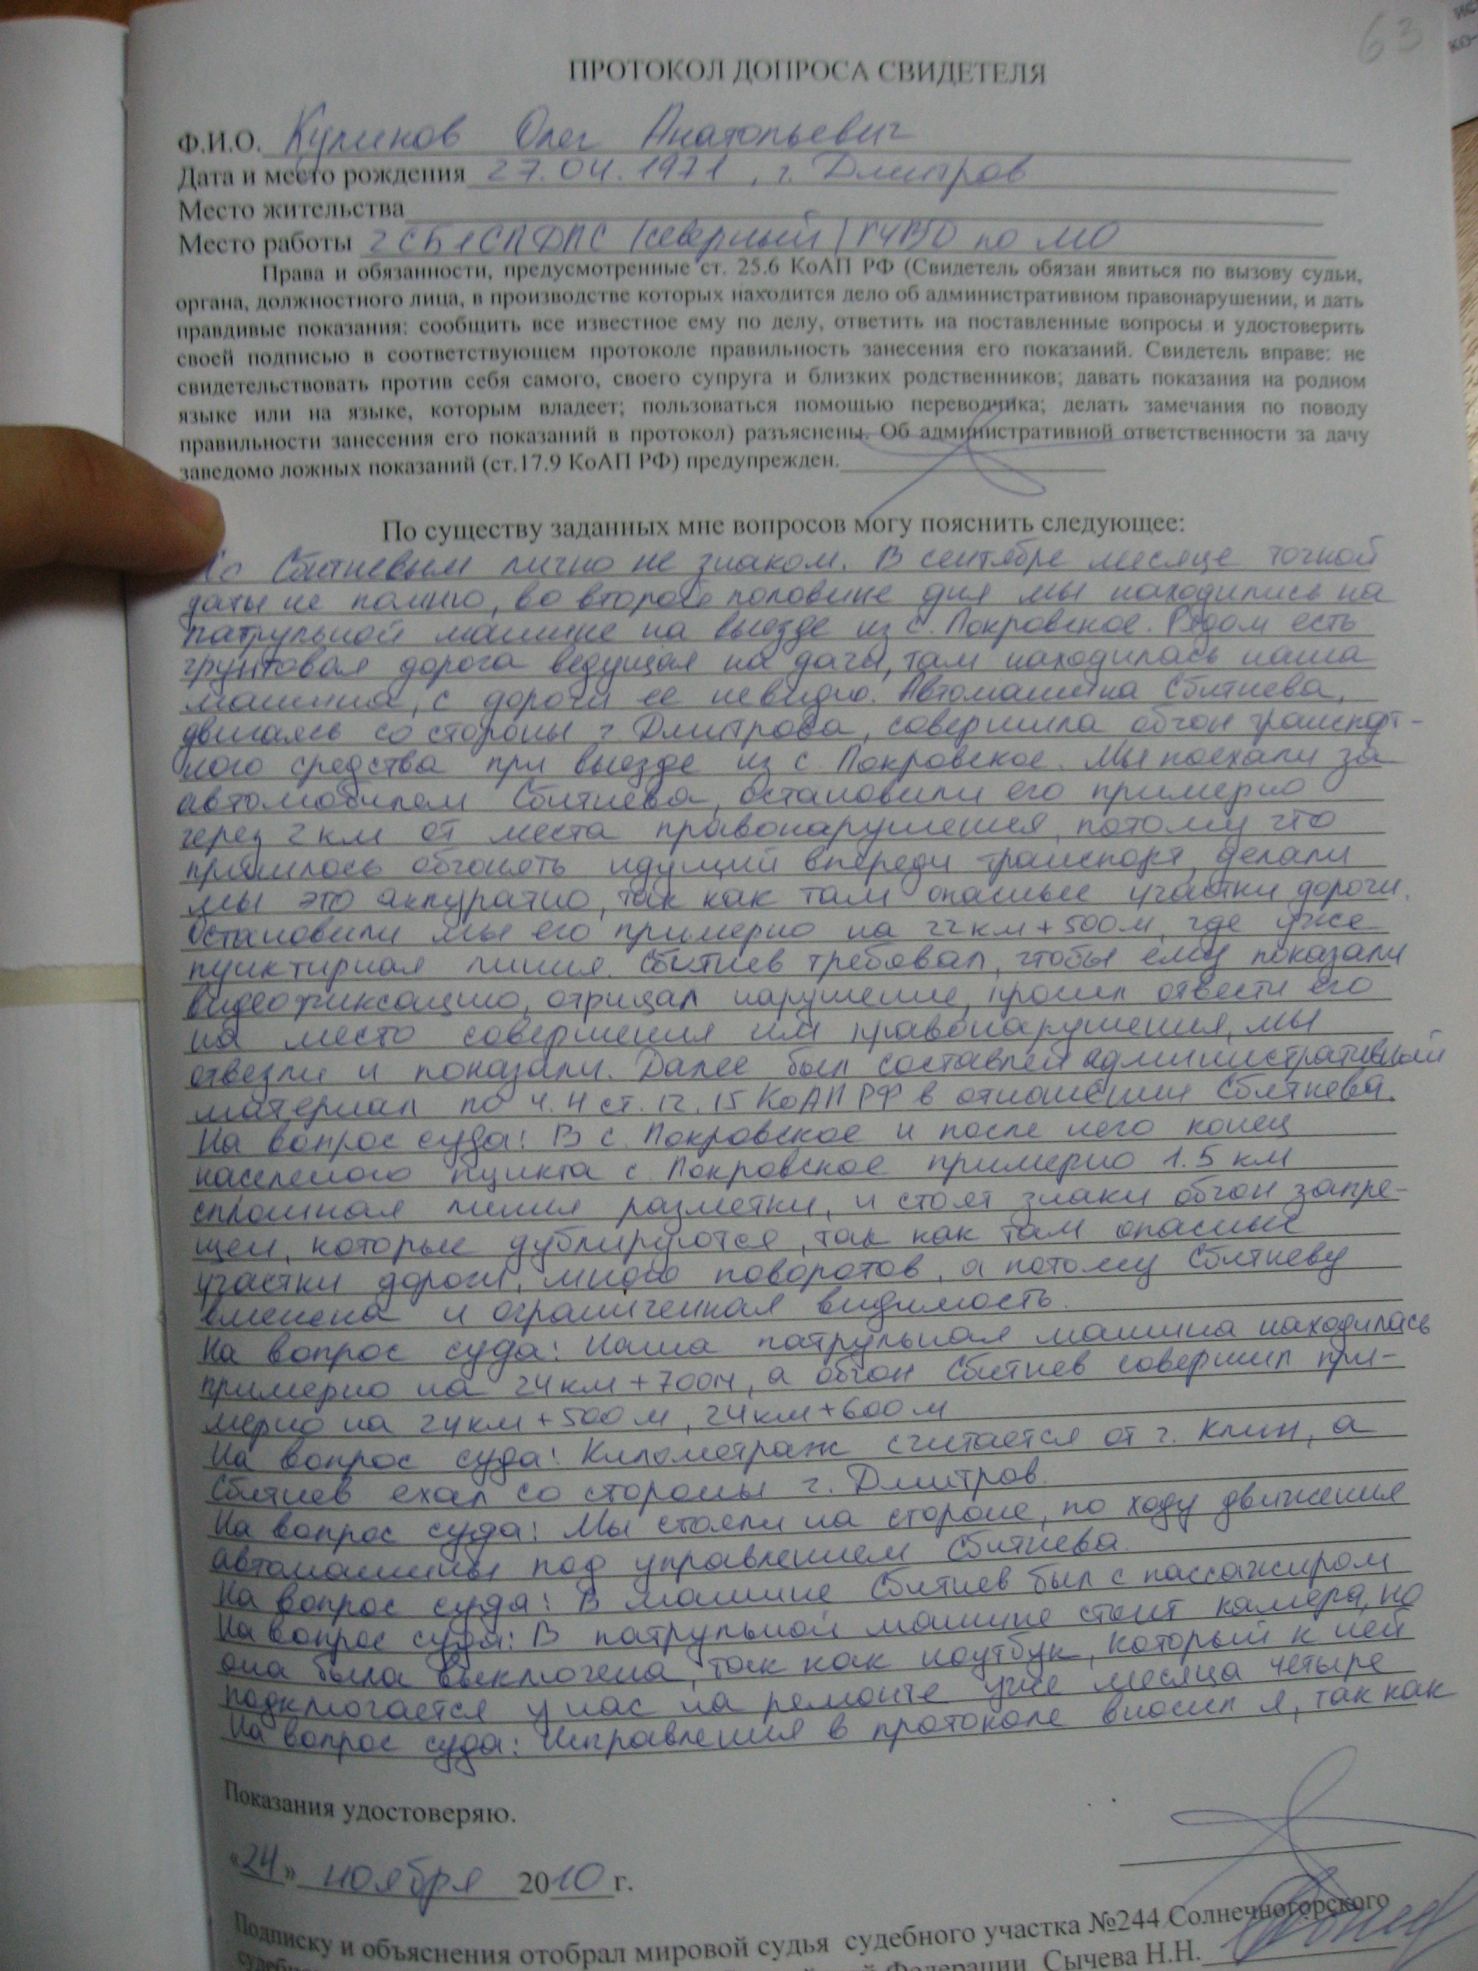 63
ПРОТОКОЛ ДОПРОСА СВИДЕТЕЛЯ
Ф.И.О. Куликов Олег Анатольевич
Дата и место рождения 27.04.1971, г. Дмитров
Место жительства
Место работы 2 СБ 1 СП ДПС (северный) ГУВД по МО
Права и обязанности, предусмотренные ст. 25.6 КоАП РФ (Свидетель обязан явиться по вызову судьи,
органа, должностного лица, в производстве которых находится дело об административном правонарушении, и дать
правдивые показания: сообщить все известное ему по делу, ответить на поставленные вопросы и удостоверить
своей подписью в соответствующем протоколе правильность занесения его показаний. Свидетель вправе: не
свидетельствовать против себя самого, своего супруга и близких родственников; давать показания на родном
языке или на языке, которым владеет; пользоваться помощью переводчика; делать замечания по поводу
правильности занесения его показаний в протокол) разъяснены. Об административной ответственности за дачу
заведомо ложных показаний (ст.17.9 КоАП РФ) предупрежден.
По существу заданных мне вопросов могу пояснить следующее:
с Сбитневым лично не знаком. В сентябре месяце точной
даты не помню, во второй половине дня мы находились на
патрульной машине на выезде из с. Покровское. Рядом есть
грунтовая дорога ведущая на дачи, там находилась наша
машина, с дороги ее не видно. Автомашина Сбитнева,
двигаясь со стороны г Дмитрова, совершила обгон транспорт-
ного средства при выезде из с Покровское. Мы поехали за
автомобилем Сбитнева, остановили его примерно
через 2 км от места правонарушения, потому что
пришлось обгонять идущий впереди транспорт, делали
мы это аккуратно, так как там опасные участки дороги.
Остановили мы его примерно на 22 км + 500 м, где уже
пунктирная линия. Сбитнев требовал, чтобы ему показали
видеофиксацию, отрицал нарушение, просил отвести его
на место совершения им правонарушения, мы
отвезли и показали. Далее был составлен административный
материал по ч. 4 ст. 12.15 КоАП РФ в отношении Сбитнева.
На вопрос суда: В с. Покровское и после него конец
населеного пункта с. Покровское примерно 1.5 км
сплошная линия разметки, и стоят знаки обгон запре-
щен, которые дублируются, так как там опасные
участки дороги, много поворотов, а потому Сбитневу
вменена и ограниченная видимость.
На вопрос суда: Наша патрульная машина находилась
примерно на 24 км + 700 м, а обгон Сбитнев совершил при-
мерно на 24 км + 500 м, 24 км + 600 м
На вопрос суда: Километраж считается от г. Клин, а
Сбитнев ехал со стороны г. Дмитров.
На вопрос суда: Мы стояли на стороне, по ходу движения
автомашины под управлением Сбитнева.
На вопрос суда: В машине Сбитнев был с пассажиром
На вопрос суда: В патрульной машине стоит камера, но
она была выключена, так как ноутбук, который к ней
подключается у нас на ремонте уже месяца четыре
На вопрос суда: Исправления в протоколе вносил я, так как
Показания удостоверяю.
«24» ноября 2010 г.
Подписку и объяснения отобрал мировой судья судебного участка №244 Солнечногорского
Федерации Сычева Н.Н.